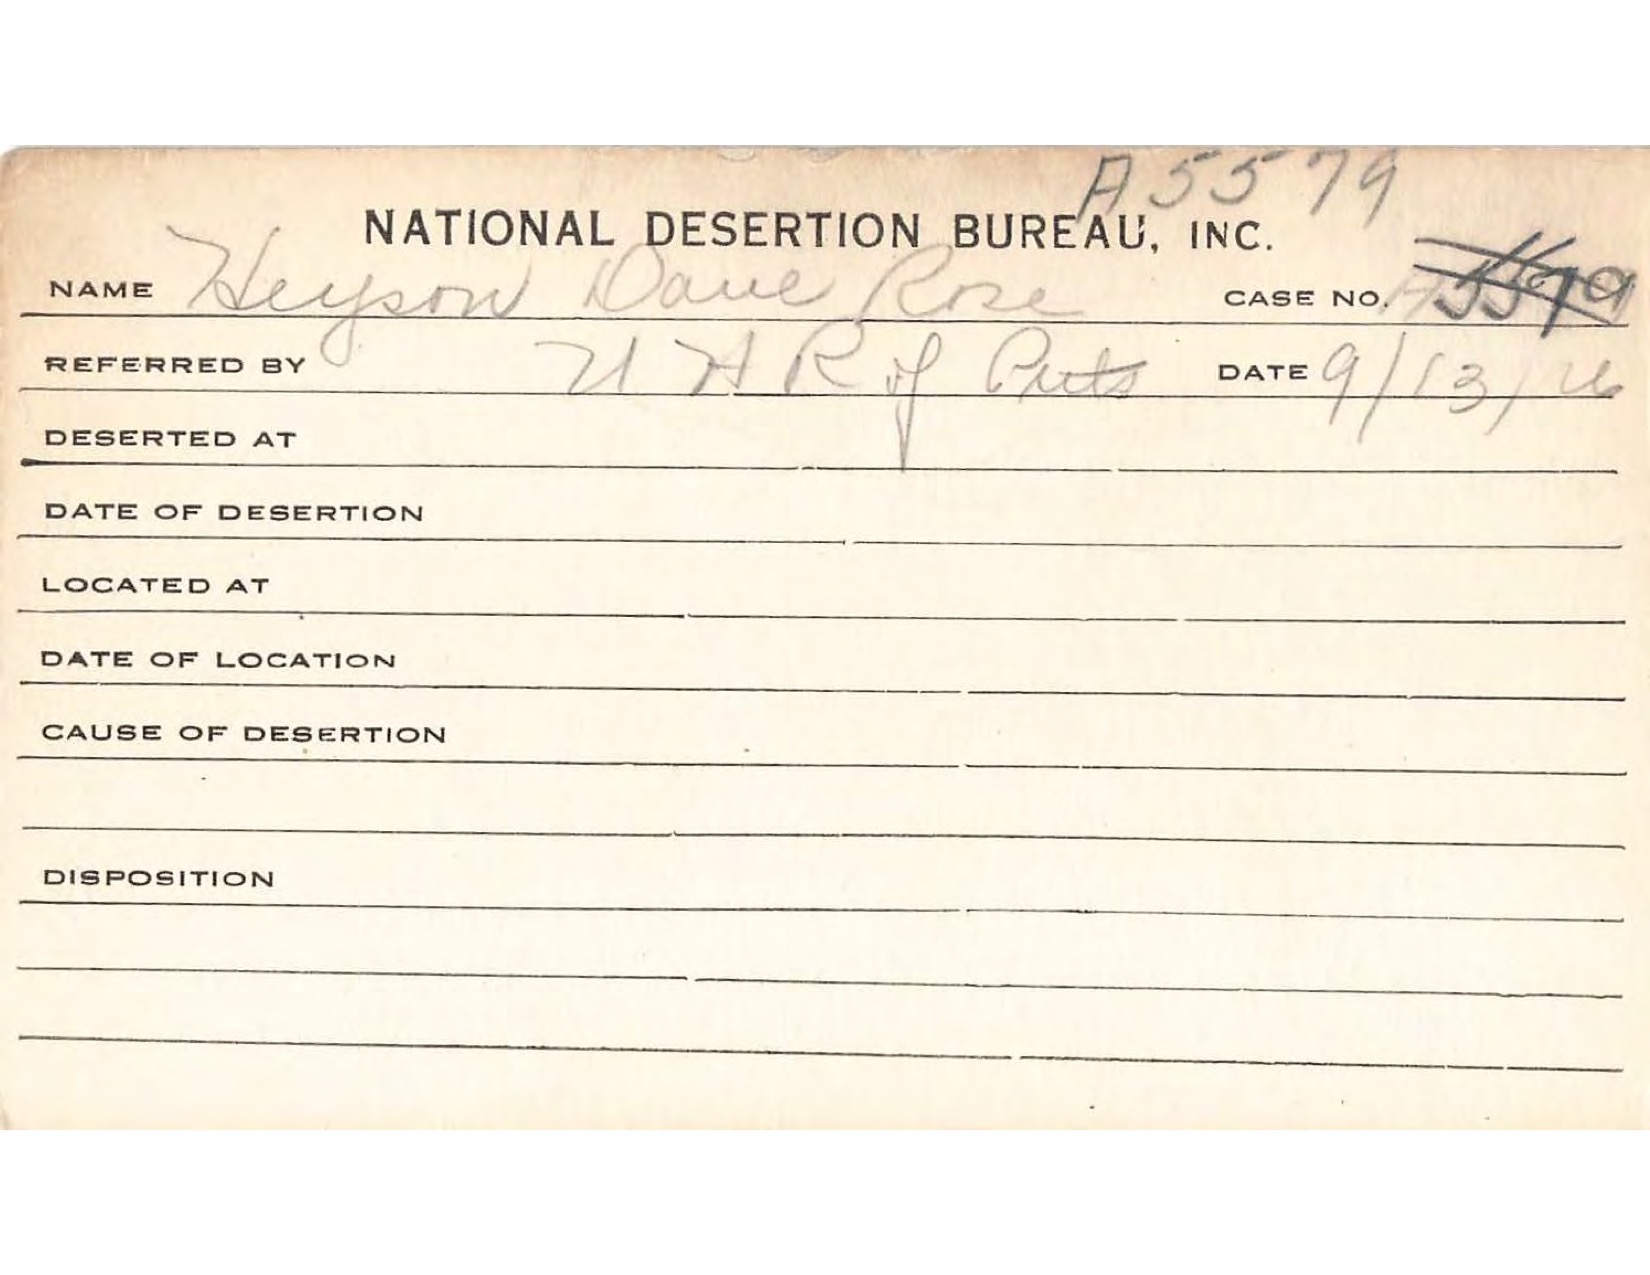 A5579
NATIONAL DESERTION BUREAU, INC.
NAME Heyson Dave Rose CASE NO. A5579
REFERRED BY U H R of Pitts DATE 9/13/26
DESERTED AT
DATE OF DESERTION
LOCATED AT
DATE OF LOCATION
CAUSE OF DESERTION
DISPOSITION